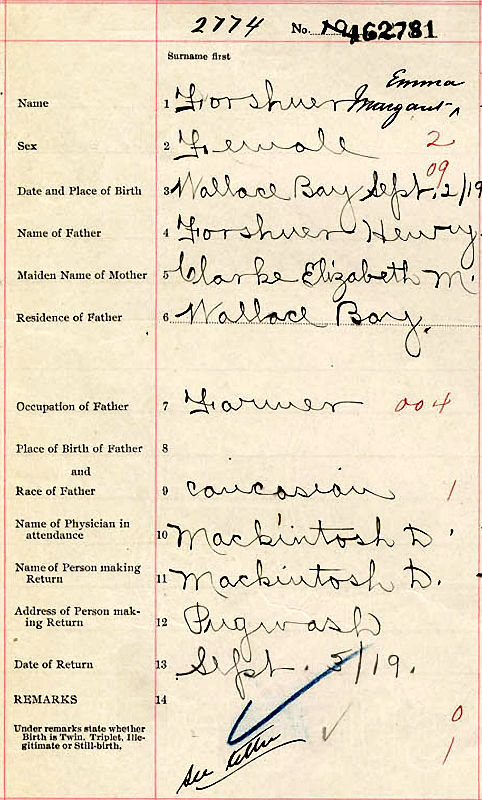 2774 No. 462781
Surname first
Emma
Name 1 Forshner Margaret ^
Sex 2 Female 2
09
Date and Place of Birth 3 Wallace Bay Sept. 2/19
Name of Father 4 Forshner Henry
Maiden Name of Mother 5 Clarke Elizabeth M.
Residence of Father 6 Wallace Bay.
Occupation of Father 7 Farmer 004
Place of Birth of Father 8
and
Race of Father 9 caucasian 1
Name of Physician in
attendance 10 Mackintosh D.
Name of Person making
Return 11 Mackintosh D.
Address of Person mak-
ing Return 12 Pugwash
Date of Return 13 Sept. 5/19.
REMARKS 14
Under remarks state whether
Birth is Twin, Triplet, Ille-
gitimate or Still-birth.
0
1
See letter